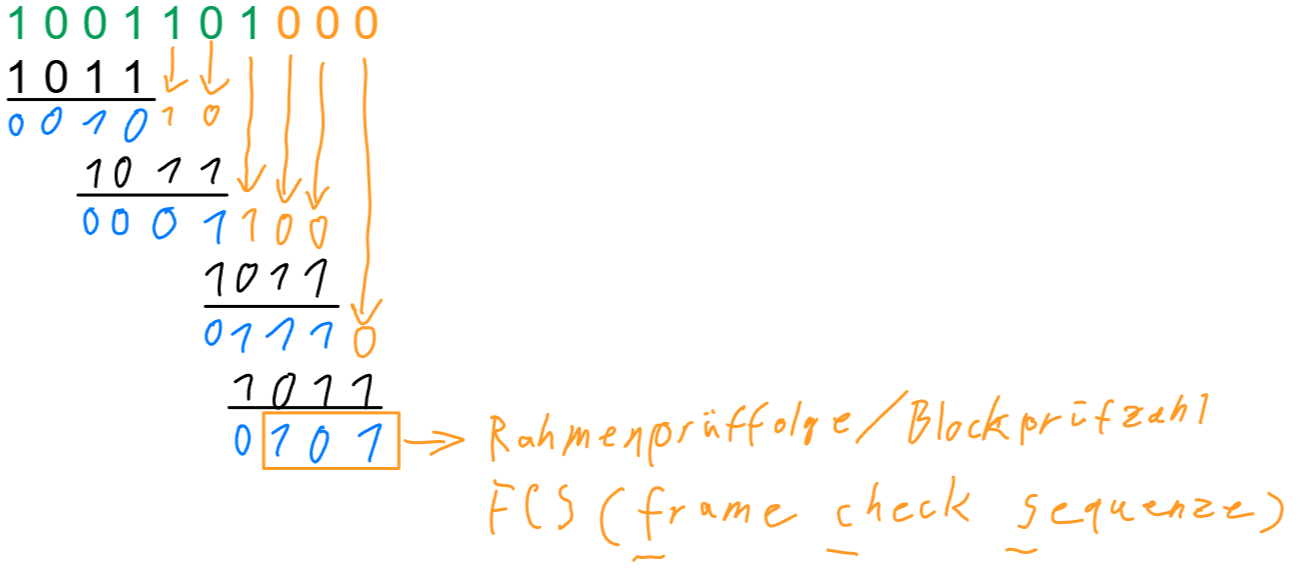 1 0 0 1 1 0 1 0 0 0
1 0 1 1
0 0 1 0 1 0
1 0 1 1
0 0 0 1 1 0 0
1 0 1 1
0 1 1 1 0
1 0 1 1
0 1 0 1 Rahmenprüffolge/Blockprüfzahl
FCS (frame check sequenze)